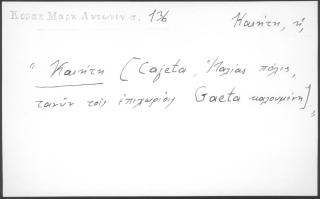 Κοραη Μαρκ Αντωνιν σ. 136
Καιήτη, ἡ,
" Καιήτη [Cajeta, Ἰταλίας πόλις,
τανῦν τοῖς ἐπιχωρίοις Gaeta καλουμένη]